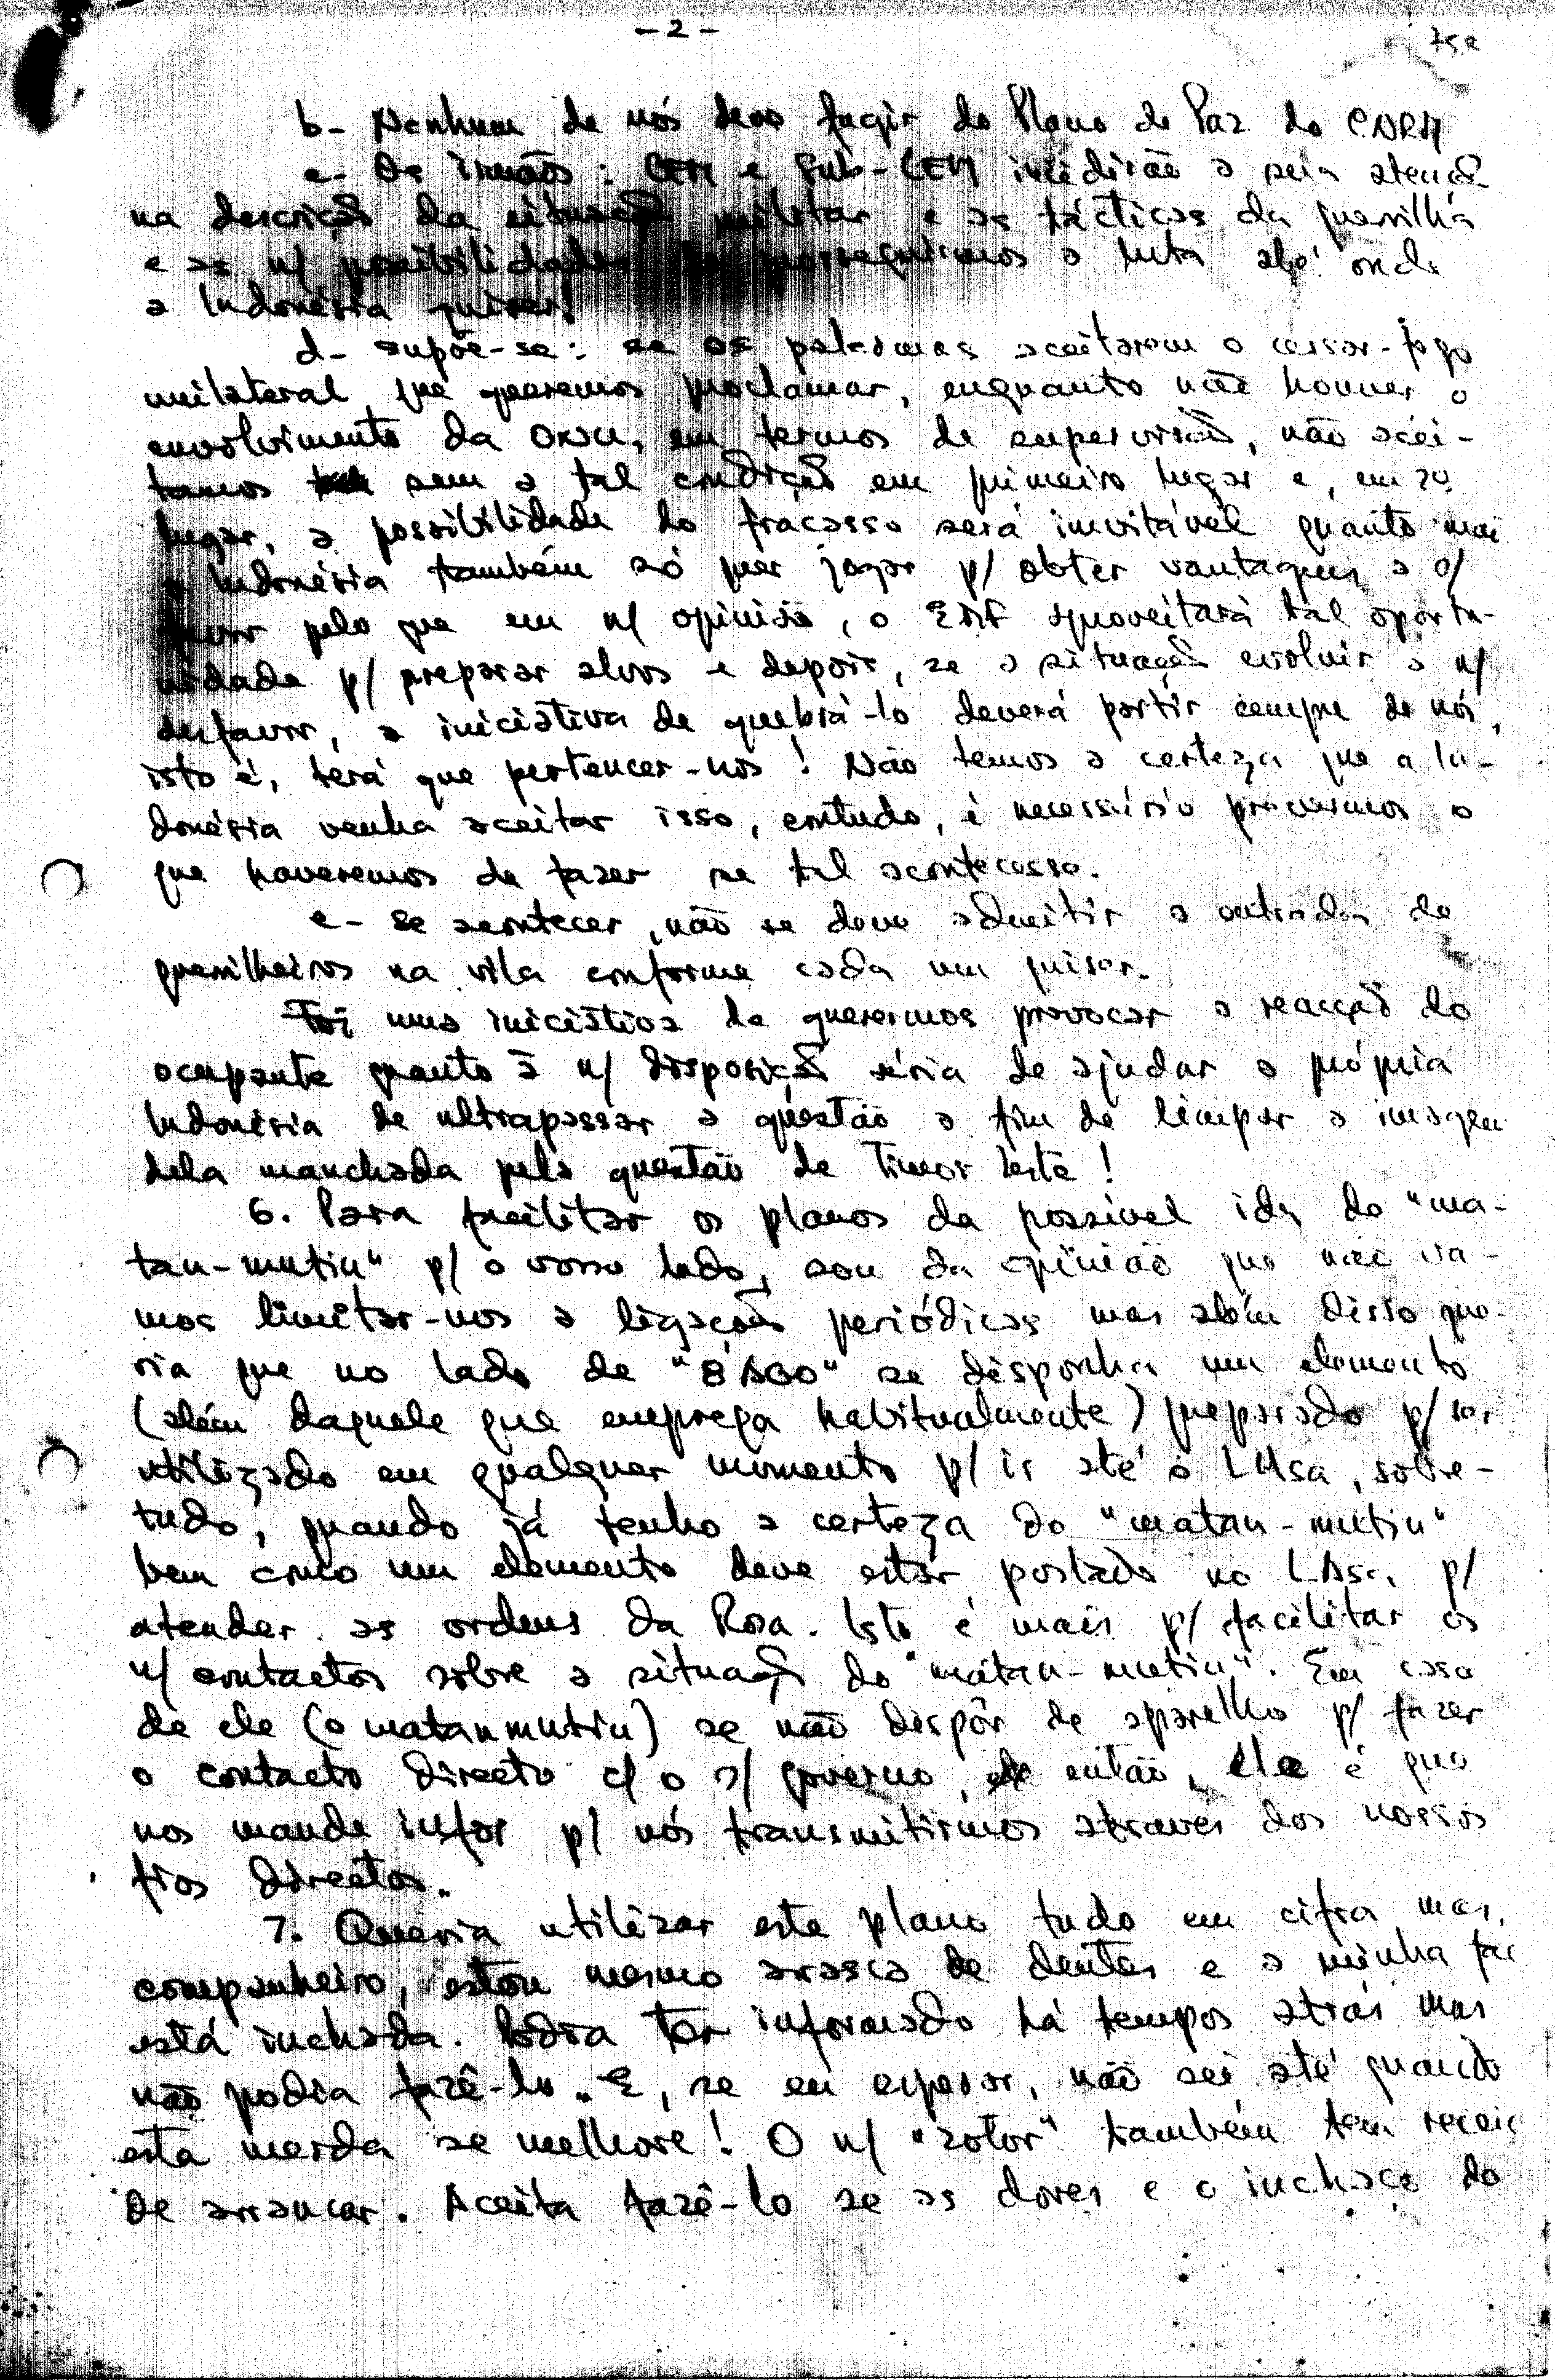 - 2 -
b- Nenhum de nós deve fugir do Plano de Paz do CNRM
c- Os irmãos: CEM e Sub-CEM incidirão a sua atenção
na descrição da situação militar e as tácticas da guerrilha
e as n/ possibilidades de prosseguirmos a luta até onde
a Indonésia quiser!
d- supõe-se: se os palermas aceitarem o cessar-fogo
unilateral que queremos proclamar, enquanto não houver o
envolvimento da ONU, em termos de supervisão, não acei-
tamos sem a tal condição em primeiro lugar e, em 2º
lugar, a possibilidade do fracasso será inevitável quanto mais
a Indonésia também só quer jogar p/ obter vantagens a s/
favor pelo que em n/ opinião, o EMF aproveitará tal oportu-
nidade p/ preparar alvos e depois, se a situação evoluir a n/
desfavor, a iniciativa de quebrá-lo deverá partir sempre de nós,
isto é, terá que pertencer-nos! Não temos a certeza que a In-
donésia venha aceitar isso, contudo, é necessário prevermos o
que haveremos de fazer se tal acontecesse.
e- Se acontecer, não se deve admitir a entrada de
guerrilheiros na vila conforme cada um quiser.
Foi uma iniciativa de querermos provocar a reacção do
ocupante quanto à n/ disposição séria de ajudar a própria
Indonésia de ultrapassar a questão a fim de limpar a imagem
dela manchada pela questão de Timor Leste!
6. Para facilitar os planos da possível ida do "ma-
tan-mutin" p/ o vosso lado, sou da opinião que não va-
mos limitar-nos a ligações periódicas mas além disso que-
ria que no lado de se disponha um elemento
(além daquele que emprega habitualmente) preparado p/ ser
utilizado em qualquer momento p/ ir até a LMsa, sobre-
tudo, quando já tenho a certeza do "matan-mutin"
bem como um elemento deve estar postado no p/
atender as ordens da Rosa. Isto é mais p/ facilitar os
n/ contactos sobre a situação do "matan-mutin". Em caso
de ele (o matanmutin) se não dispôr de aparelho p/ fazer
o contacto directo c/ o s/ governo, então, ele é que
nos mande infor p/ nós transmitirmos através dos nossos
fios directos.
7. Queria utilizar este plano tudo em cifra mas,
companheiro, estou mesmo à rasca de dentes e a minha face
está inchada. Podia ter informado há tempos atrás mas
não podia fazê-lo. E, se eu esperar, não sei até quando
esta merda se melhore! O n/ "sotor" também tem receio
de arrancar. Aceita fazê-lo se as dores e o inchaço do